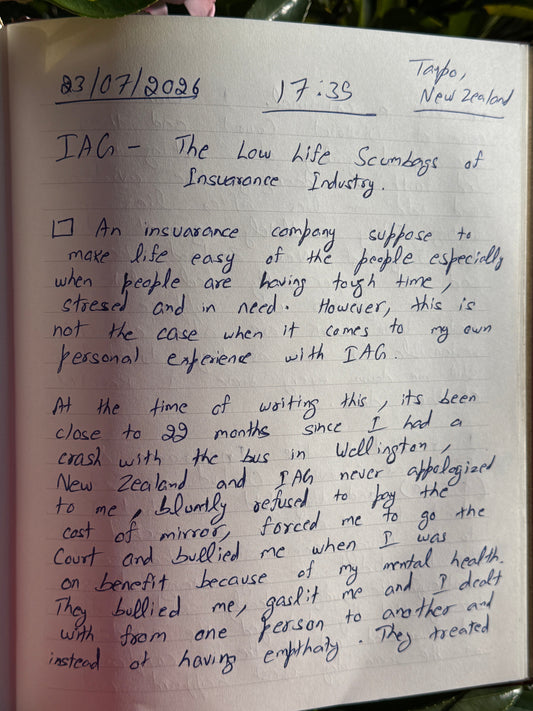 23/07/2026 17:35 Taupo,
New Zealand
IAG - The Low Life Scumbags of
Insuarance Industry.
□ An insuarance company suppose to
make life easy of the people especially
when people are having tough time,
stresed and in need. However, this is
not the case when it comes to my own
personal experience with IAG.
At the time of writing this, its been
close to 22 months since I had a
crash with the bus in Wellington,
New Zealand and IAG never appologized
to me, bluntly refused to pay the
cost of mirror, forced me to go the
Court and bullied me when I was
on benefit because of my mental health.
They bullied me, gaslit me and I dealt
with from one person to another and
instead of having empthaty. They treated